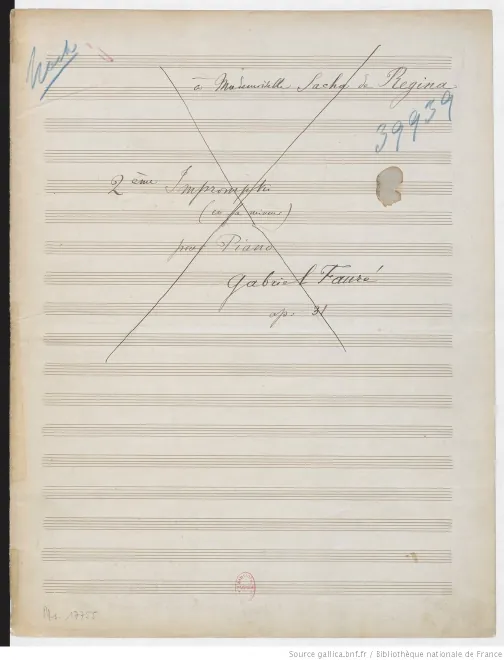 à Mademoiselle Sacha de Regina
39939
2ème Impromptu
(en fa mineur)
pour Piano
Gabriel Fauré
op. 31
Ms. 17755
Source gallica.bnf.fr / Bibliothèque nationale de France